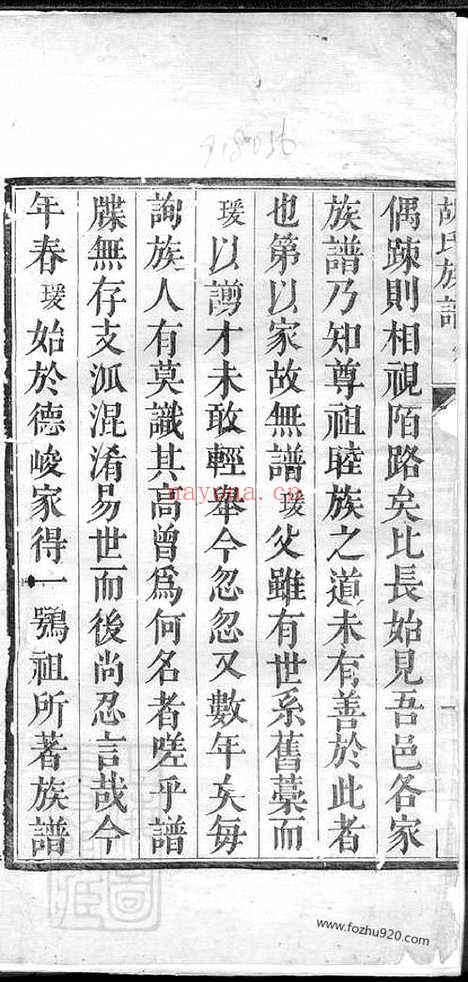 918056
胡氏族譜
偶踈則相視陌路矣比長始見吾邑各家
族譜乃知尊祖睦族之道未有善於此者
也第以家故無譜瑗父雖有世系舊藁而
瑗以謭才未敢輕舉今忽忽又數年矣毎
詢族人有莫識其高曾爲何名者嗟乎譜
牒無存支泒混淆易世而後尚忍言哉今
年春瑗始於德峻家得一鶚祖所著族譜
nayona.cn
www.fozhu920.com